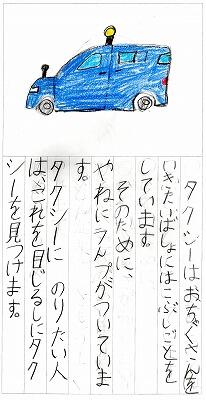 タクシーはおきゃくさんを
いきたいばしょにはこぶしごとを
しています
そのために、
やねにランプがついていま
す。
タクシーに のりたい人
は、それを目じるしにタク
シーを見つけます。